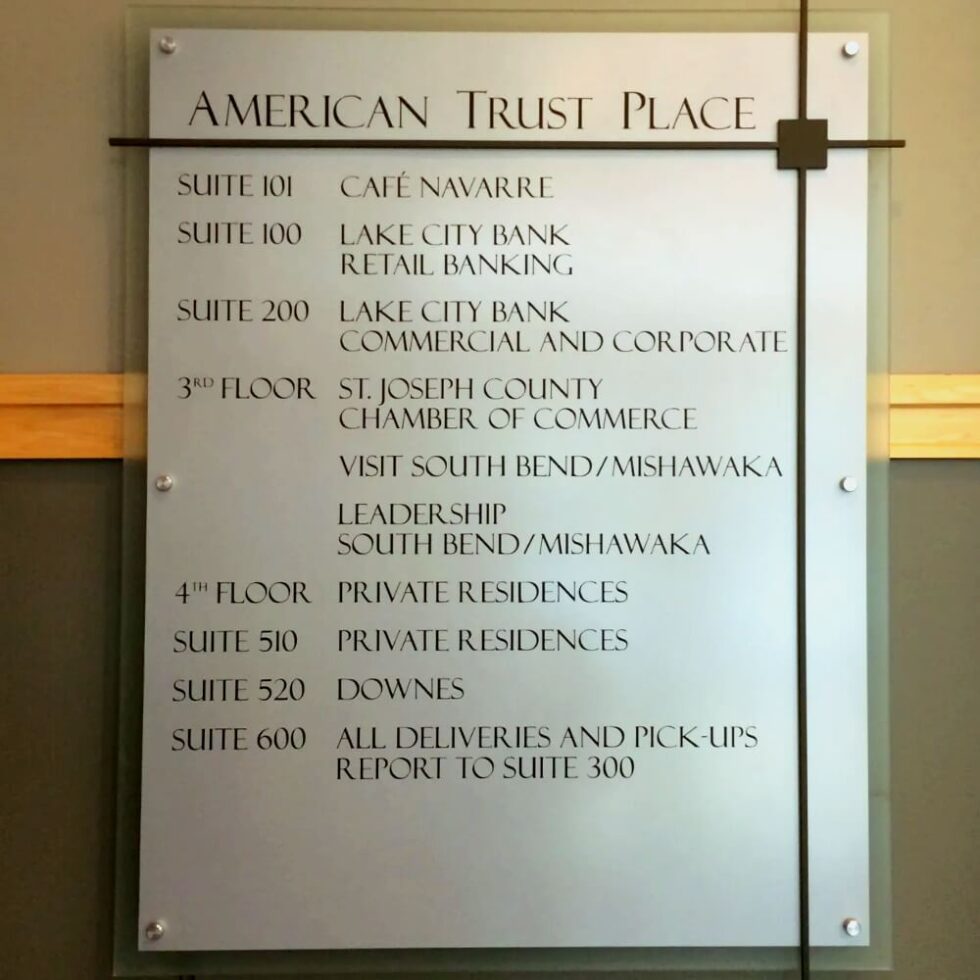 AMERICAN TRUST PLACE
SUITE 101 CAFÉ NAVARRE
SUITE 100 LAKE CITY BANK
RETAIL BANKING
SUITE 200 LAKE CITY BANK
COMMERCIAL AND CORPORATE
3RD FLOOR ST. JOSEPH COUNTY
CHAMBER OF COMMERCE
VISIT SOUTH BEND/MISHAWAKA
LEADERSHIP
SOUTH BEND/MISHAWAKA
4TH FLOOR PRIVATE RESIDENCES
SUITE 510 PRIVATE RESIDENCES
SUITE 520 DOWNES
SUITE 600 ALL DELIVERIES AND PICK-UPS
REPORT TO SUITE 300